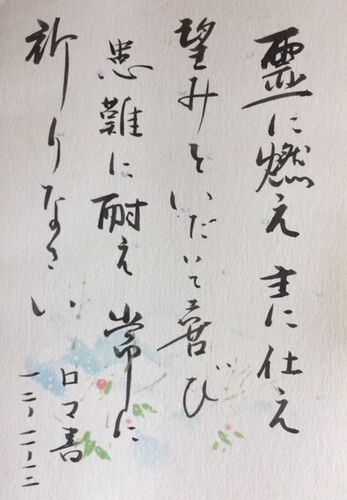 霊に燃え 主に仕え
望みをいだいて喜び
患難に耐え 常に
祈りなさい
ロマ書
一二・一一・一二